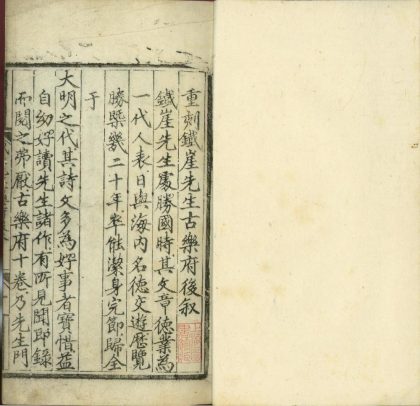 重刻鐵崖先生古樂府後叙
鐵崖先生處勝國時其文章德業為
一代人表日與海內名德交遊歷覽
勝槩幾二十年卒能潔身完節歸全
于
大明之代其詩文多為好事者寶惜益
自幼好讀先生諸作有所見聞即錄
而閱之弗厭古樂府十卷乃先生門